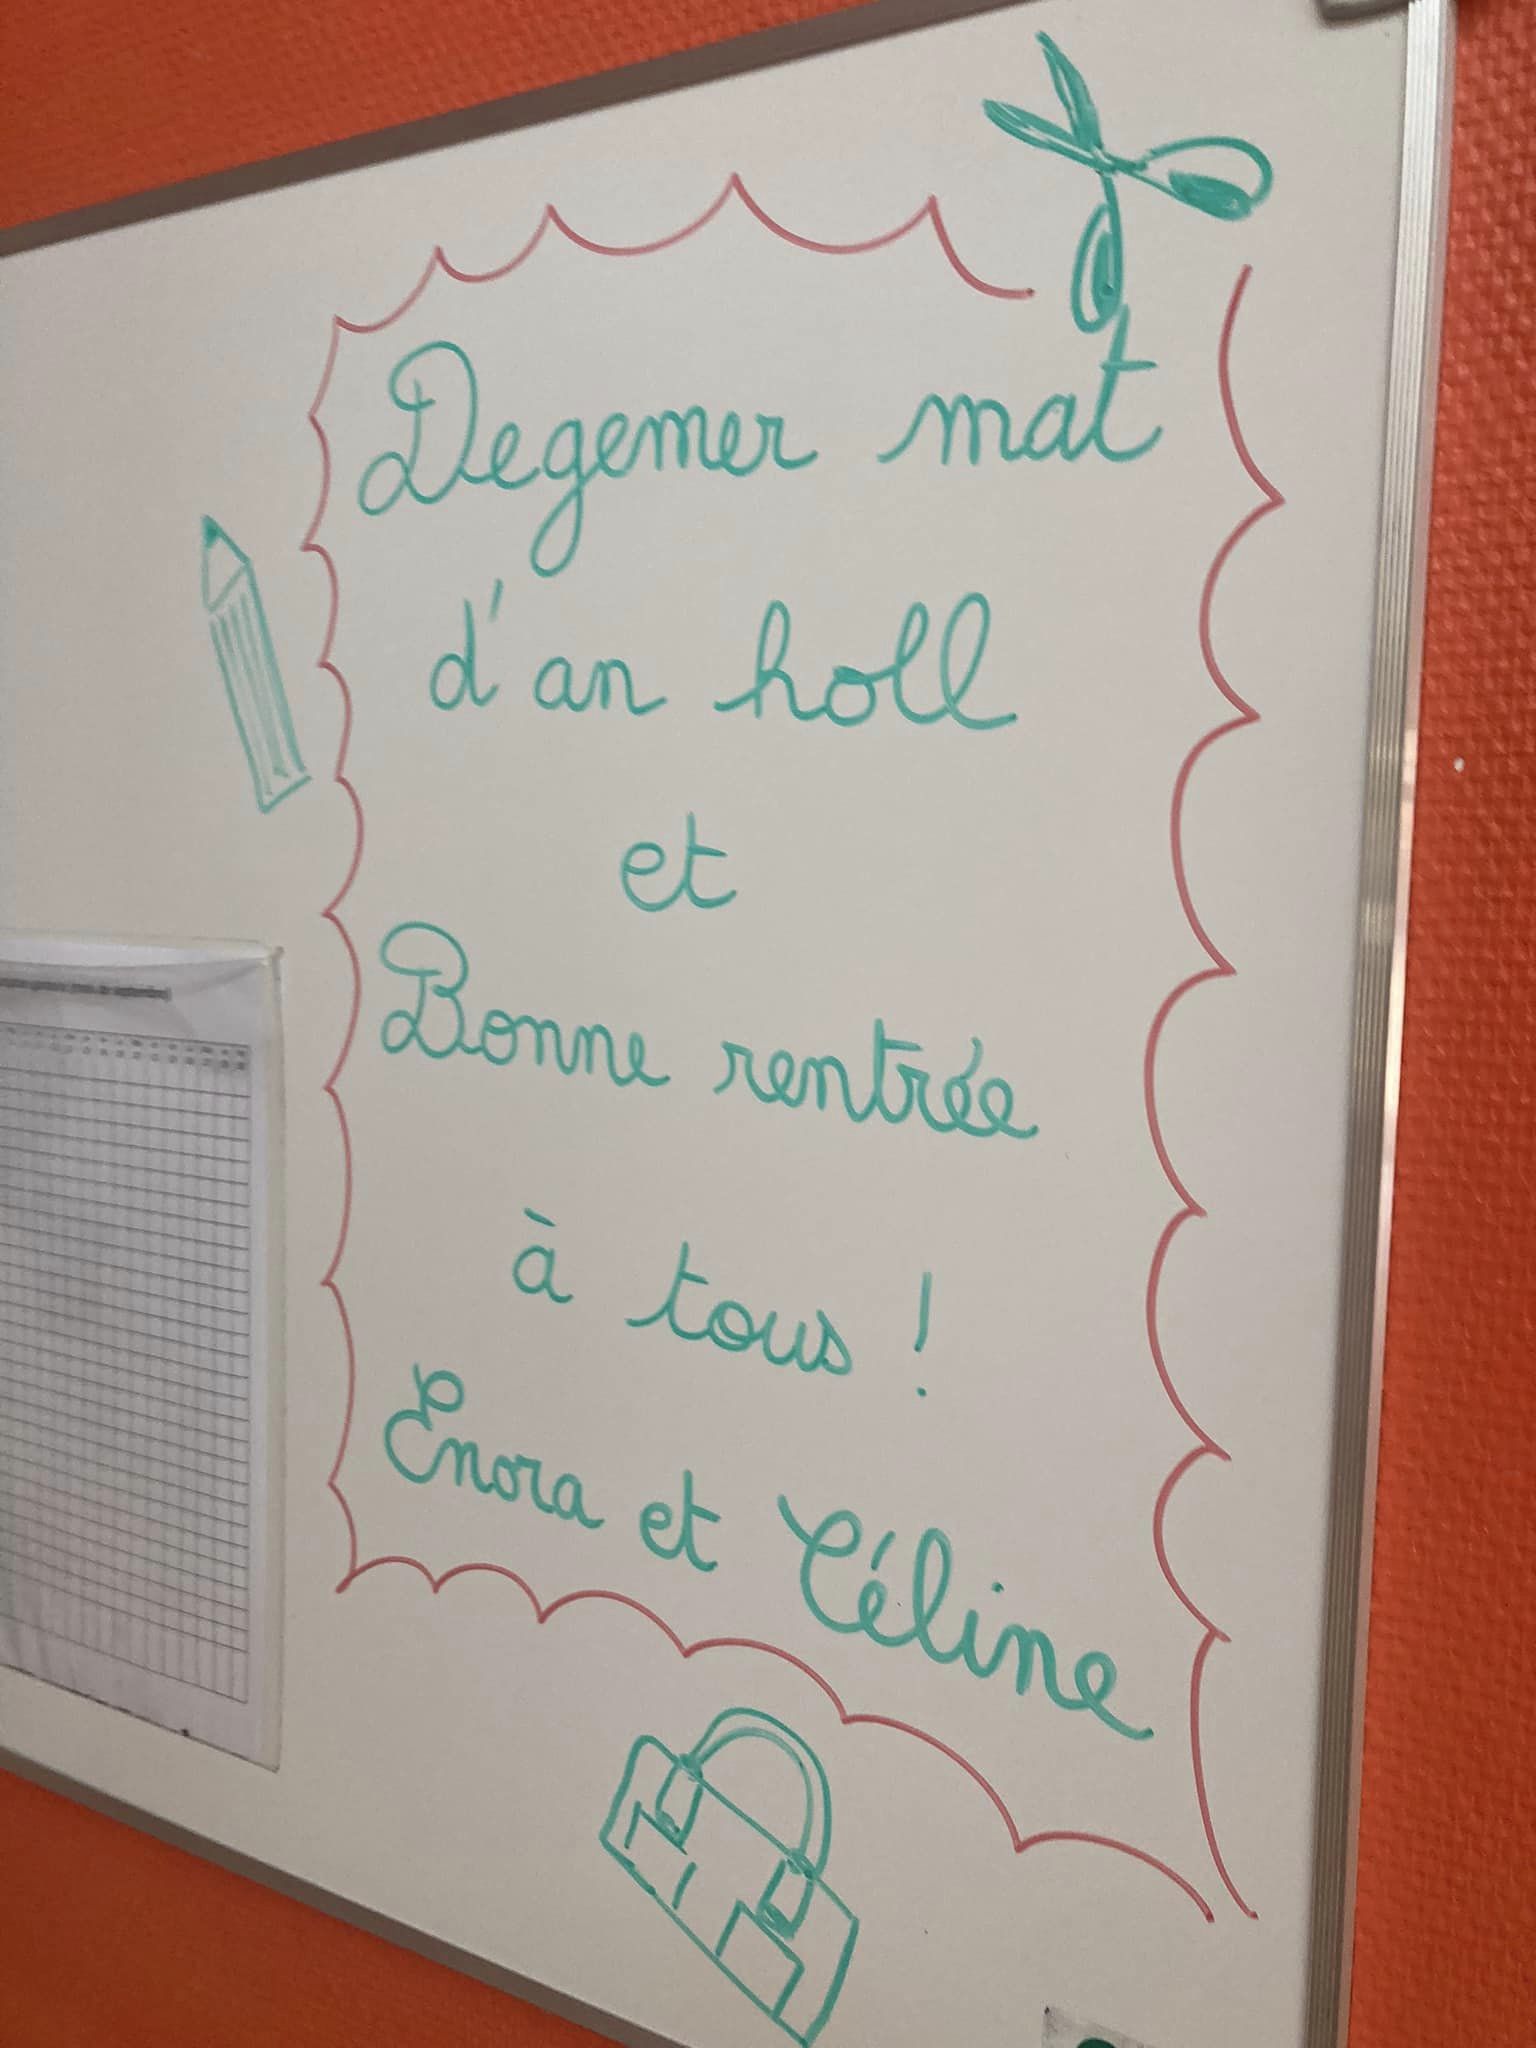 Degemer mat
d'an holl
et
Bonne rentrée
à tous !
Enora et Céline